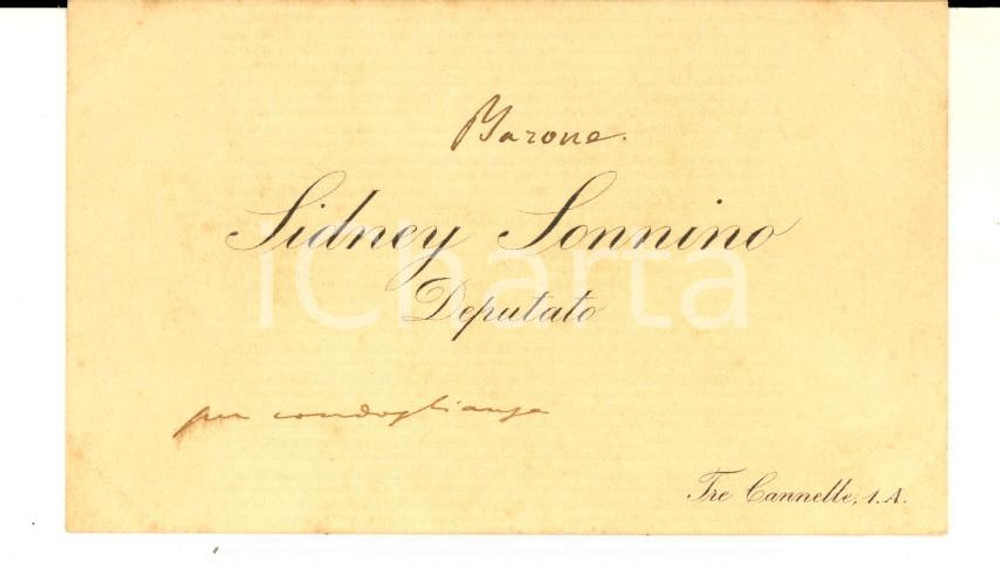 Barone.
Sidney Sonnino
iCharta
Deputato
per condoglianze
Tre Cannelle, 1.A.